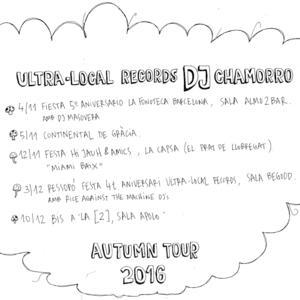 ULTRA-LOCAL RECORDS DJ CHAMORRO
4/11 FIESTA 5º ANIVERSARIO LA FONOTECA BARCELONA, SALA ALMO2BAR.
AMB DJ MASOVERA
5/11 CONTINENTAL DE GRÀCIA.
12/11 FESTA Hi JAUH & AMICS, LA CAPSA (EL PRAT DE LLOBREGAT)
"MIAMI BAIX"
3/12 PESSOPÓ FESTA 4t ANIVERSARI ULTRA-LOCAL RECORDS, SALA BEGOOD.
AMB RICE AGAINST THE MACHINE DJ's
10/12 BIS A 'LA [2], SALA APOLO'
AUTUMN TOUR
2016